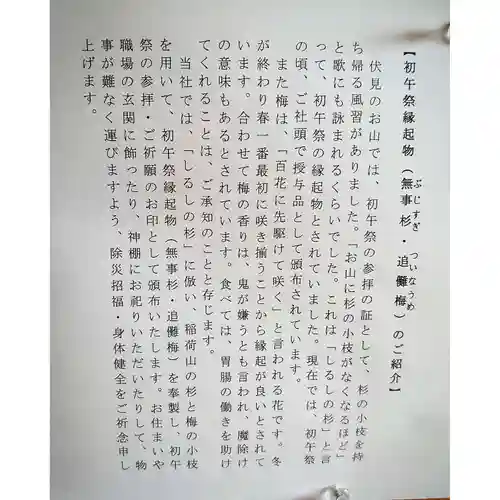 【初午祭縁起物(無事杉・追儺梅)のご紹介】
ぶじすぎ
ついなうめ
伏見のお山では、初午祭の参拝の証として、杉の小枝を持
ち帰る風習がありました。「お山に杉の小枝がなくなるほど」
と歌にも詠まれるくらいでした。これは「しるしの杉」と言
って、初午祭の縁起物とされていました。現在では、初午祭
の頃、ご社頭で授与品として頒布されています。
また梅は、「百花に先駆けて咲く」と言われる花です。冬
が終わり春一番最初に咲き揃うことから縁起が良いとされて
います。合わせて梅の香りは、鬼が嫌うとも言われ、魔除け
の意味もあるとされています。食べては、胃腸の働きを助け
てくれることは、ご承知のことと存じます。
当社では、「しるしの杉」に倣い、稲荷山の杉と梅の小枝
を用いて、初午祭縁起物(無事杉・追儺梅)を奉製し、初午
祭の参拝・ご祈願のお印として頒布いたします。お住まいや
職場の玄関に飾ったり、神棚にお祀りいただいたりして、物
事が難なく運びますよう、除災招福・身体健全をご祈念申し
上げます。